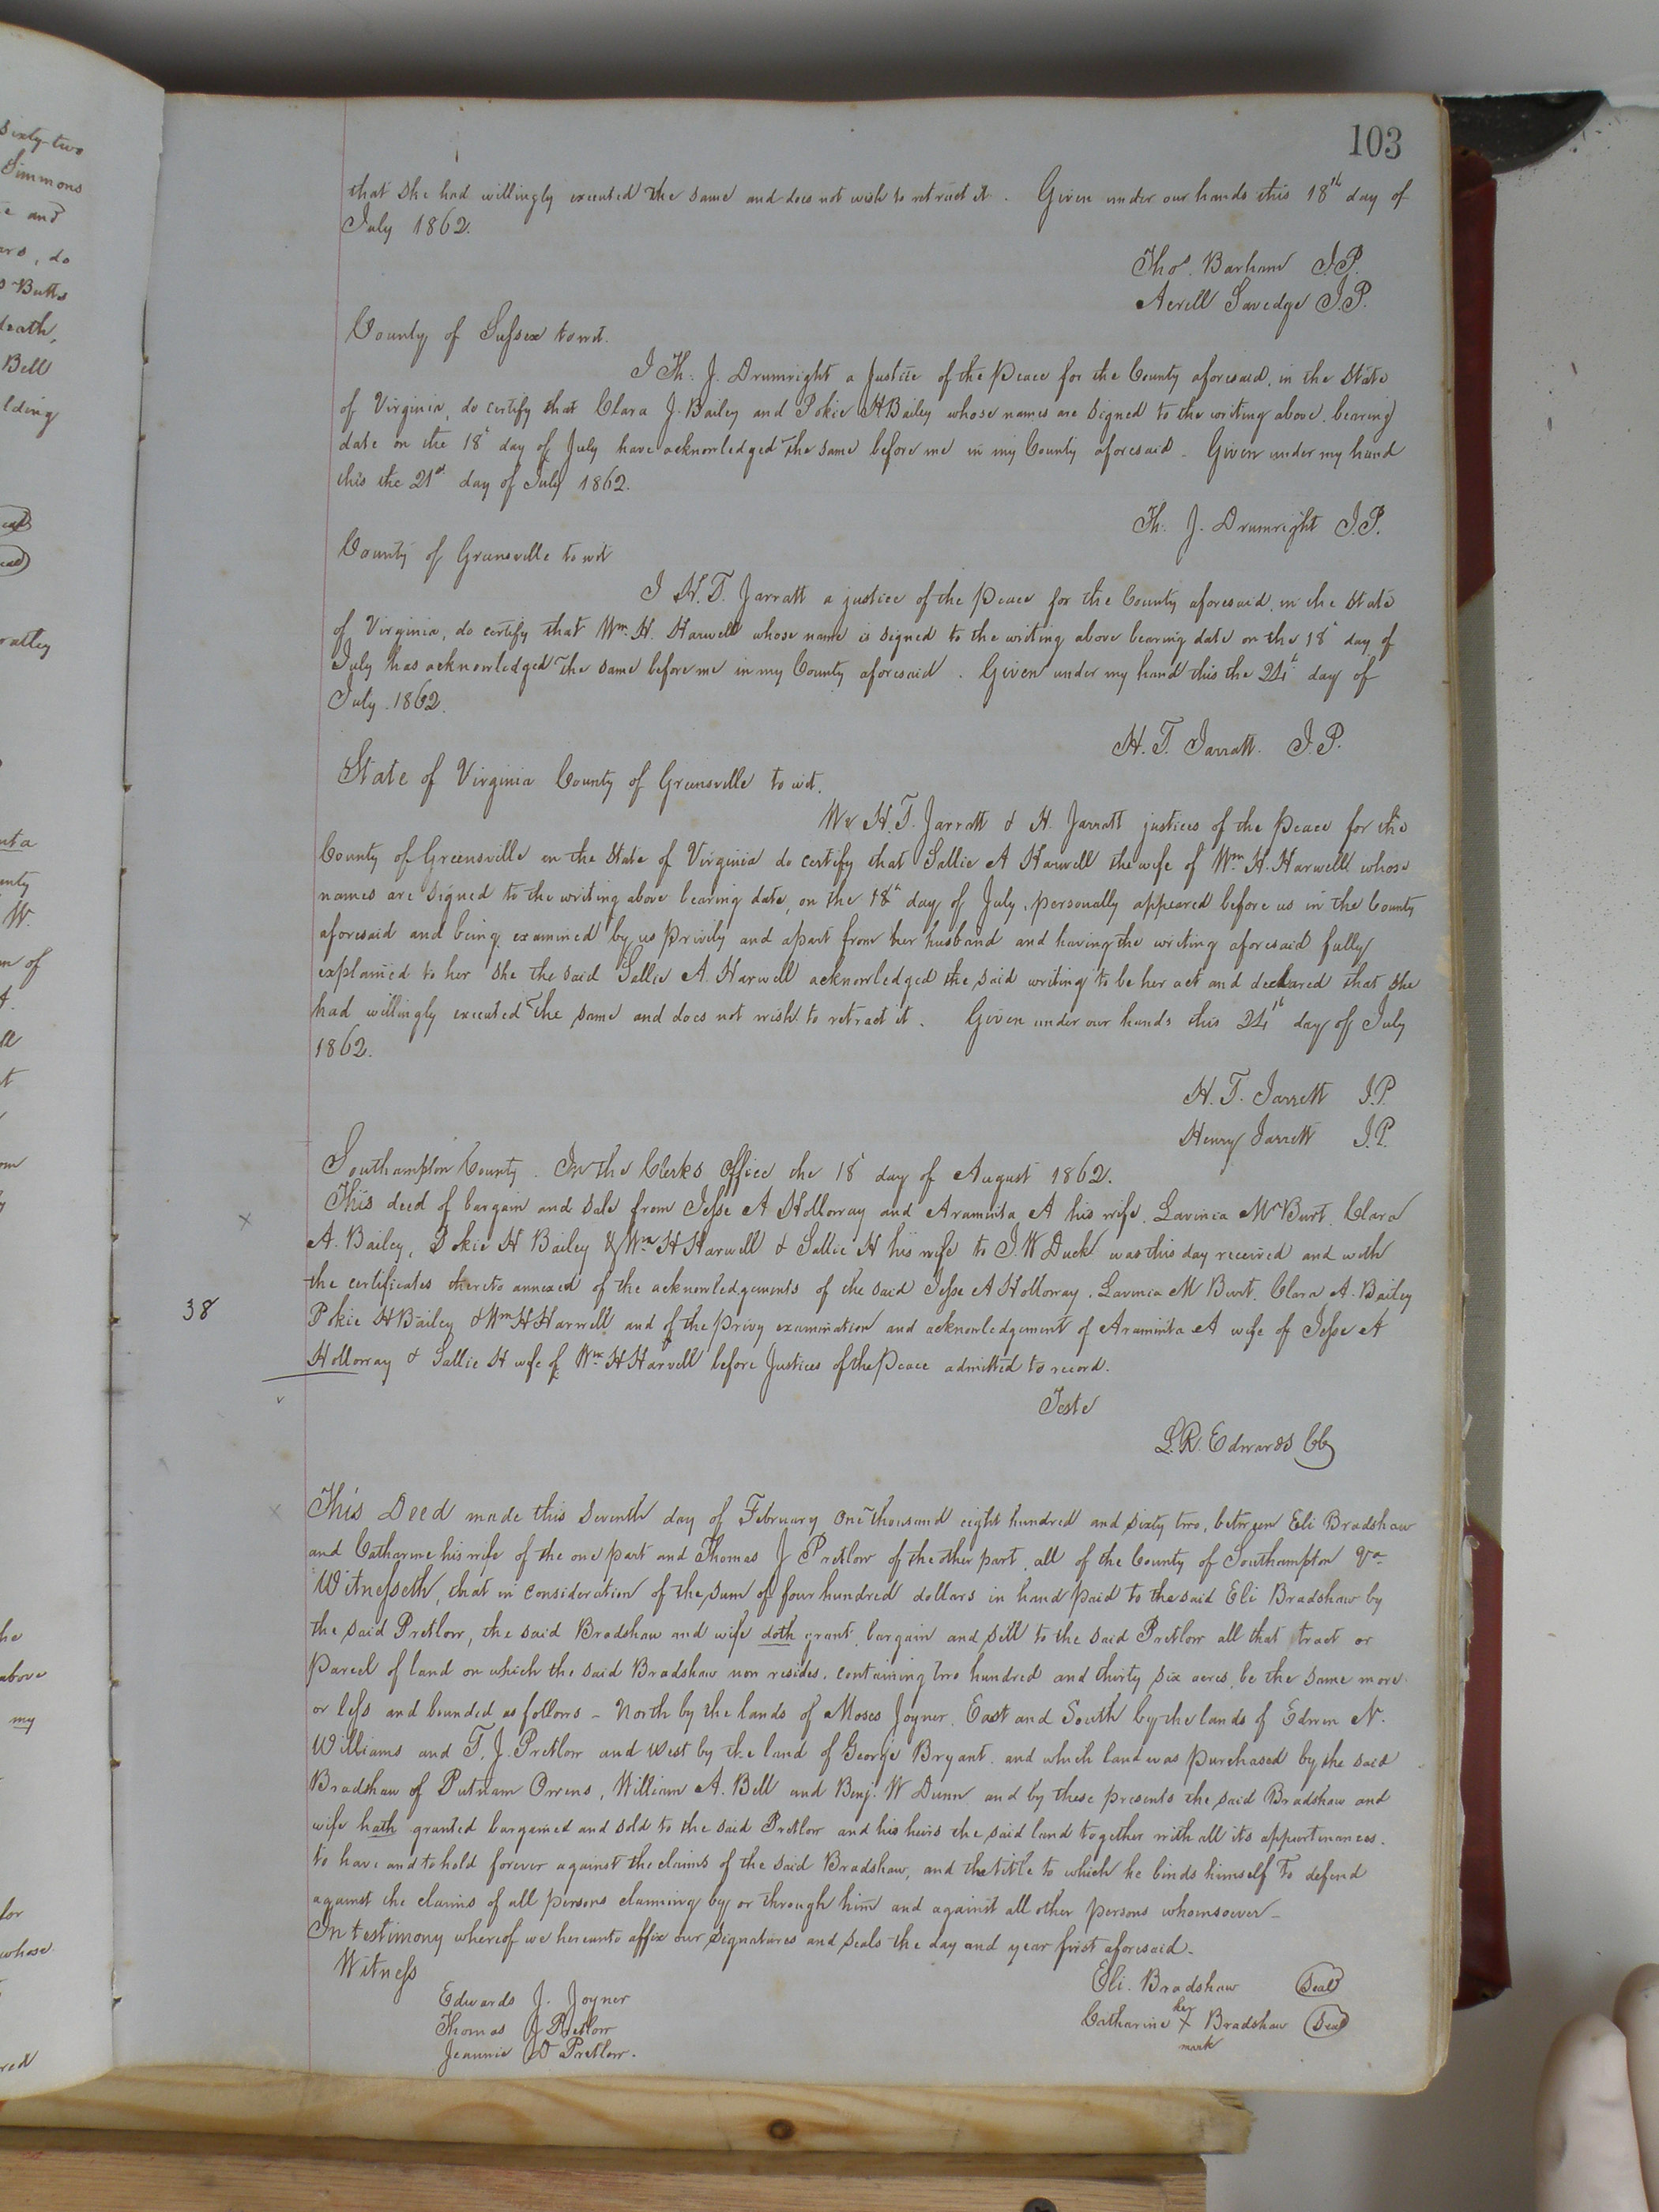 103
that she had willingly executed the same and does not wish to retract it. Given under our hands this 18th day of
July 1862.
Thos. Barham J.P.
Averill Savedge J.P.
County of Sussex to wit.
I Th. J. Drumright a Justice of the Peace for the County aforesaid, in the State
of Virginia, do certify that Clara J. Bailey and Pokie H Bailey whose names are signed to the writing above bearing
date on the 18t day of July have acknowledged the same before me in my County aforesaid. Given under my hand
this the 21st day of July 1862.
Th. J. Drumright J.P.
County of Greensville to wit
I H. T. Jarratt a justice of the Peace for the County aforesaid, in the State
of Virginia, do certify that Wm. H. Harwell whose name is signed to the writing above bearing date on the 18t day of
July has acknowledged the same before me in my County aforesaid. Given under my hand this the 24t day of
July 1862.
H. T. Jarratt. J.P.
State of Virginia County of Greensville to wit.
We H. T. Jarratt & H. Jarratt justices of the Peace for the
County of Greensville in the State of Virginia do certify that Sallie A Harwell the wife of Wm H. Harwell whose
names are signed to the writing above bearing date, on the 18th day of July, personally appeared before us in the County
aforesaid and being examined by us privily and apart from her husband and having the writing aforesaid fully
explained to her she the said Sallie A. Harwell acknowledged the said writing to be her act and declared that she
had willingly executed the same and does not wish to retract it. Given under our hands this 24th day of July
1862.
H. T. Jarrett J.P.
Henry Jarrett J.P.
Southampton County. In the Clerks Office the 18t day of August 1862.
This deed of bargain and sale from Jesse A Holloway and Araminta A his wife, Lavinia M Burt, Clara
A. Bailey, Pokie H Bailey & Wm H Harwell & Sallie H his wife to J. W Duck was this day received and with
the certificates thereto annexed of the acknowledgements of the said Jesse A Holloway, Lavinia M Burt, Clara A. Bailey
38
Pokie H Bailey & Wm H Harwell and of the privy examination and acknowledgement of Araminta A wife of Jesse A
Holloway & Sallie H wife of Wm H Harwell before Justices of the Peace admitted to record.
Teste
L. R. Edwards CC
This Deed made this Seventh day of February One thousand eight hundred and sixty two, between Eli Bradshaw
and Catharine his wife of the one part and Thomas J Pretlow of the other part, all of the County of Southampton Va
Witnesseth, that in consideration of the sum of four hundred dollars in hand paid to the said Eli Bradshaw by
the said Pretlow, the said Bradshaw and wife doth grant, bargain and sell to the said Pretlow all that tract or
parcel of land on which the said Bradshaw now resides, containing two hundred and thirty six acres, be the same more
or less and bounded as follows - North by the lands of Moses Joyner, East and South by the lands of Edwin N.
Williams and T. J. Pretlow and West by the land of George Bryant, and which land was purchased by the said
Bradshaw of Putnam Owens, William A. Bell and Benj. W Dunn and by these presents the said Bradshaw and
wife hath granted bargained and sold to the said Pretlow and his heirs the said land together with all its appurtenances.
to have and to hold forever against the claims of the said Bradshaw, and the title to which he binds himself to defend
against the claims of all persons claiming by or through him and against all other persons whomsoever -
In testimony whereof we hereunto affix our signatures and seals the day and year first aforesaid -
Witness
Eli. Bradshaw Seal
Edwards J. Joyner
her
Catharine x Bradshaw Seal
mark
Thomas J Pretlow
Jeannie D Pretlow.